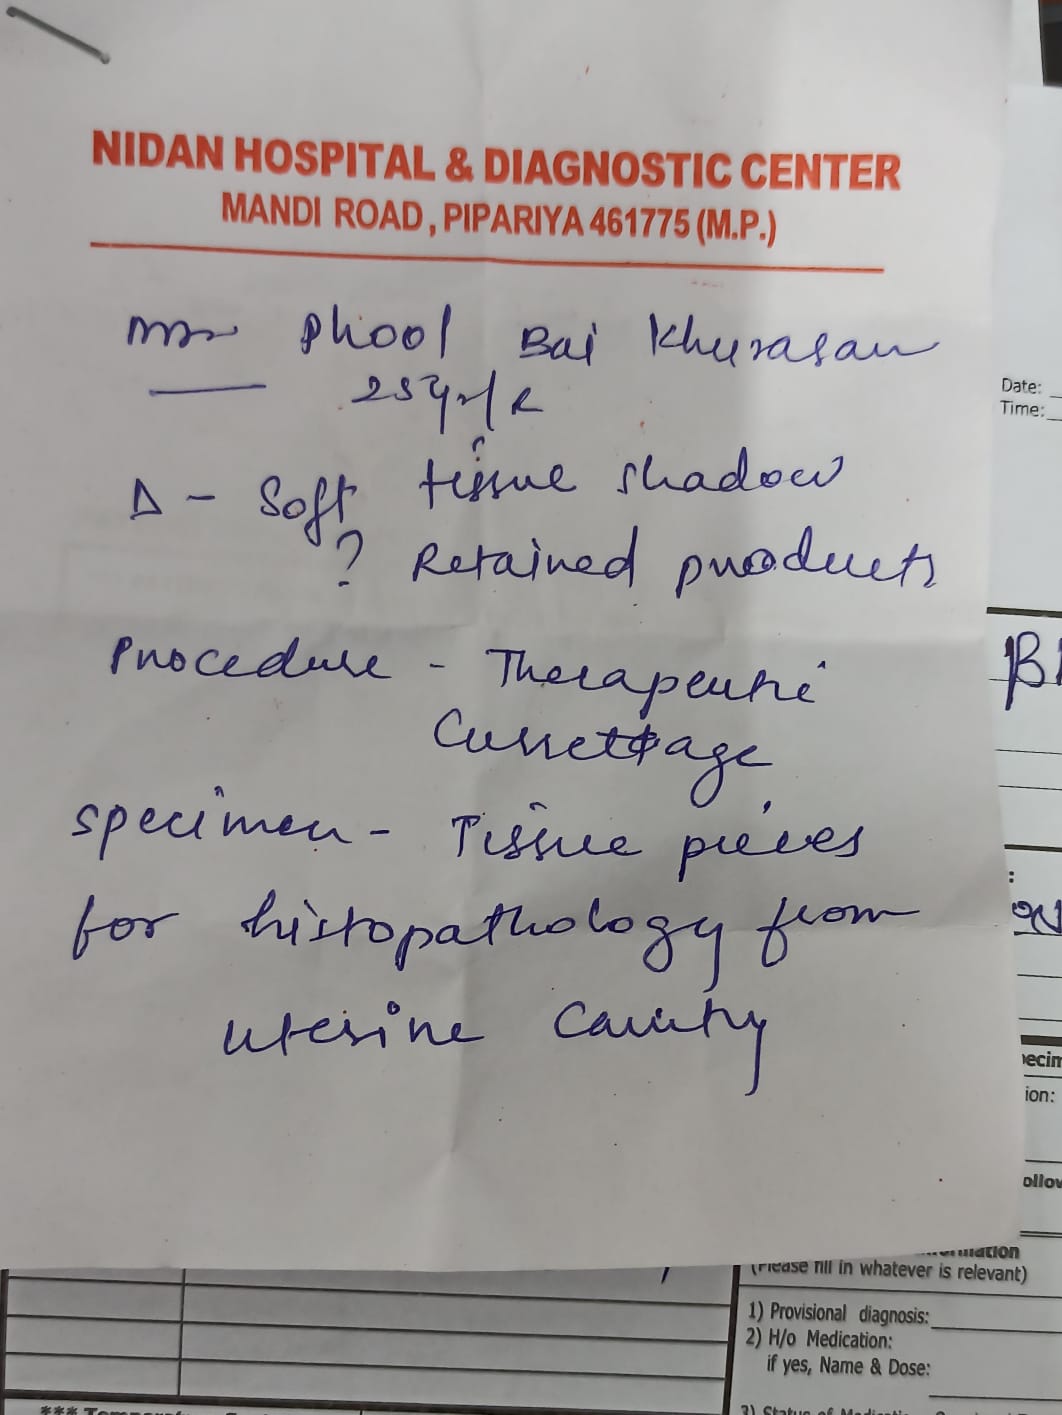 NIDAN HOSPITAL & DIAGNOSTIC CENTER
MANDI ROAD, PIPARIYA 461775 (M.P.)
Phool Bai Khurasan
Date:
Time:
Δ - Soft tissue shadow
? Retained products
Procedure - Therapeutic
Curettage
specimen - Tissue pieces
for histopathology from
uterine cavity
ion:
(Please fill in whatever is relevant)
1) Provisional diagnosis:
2) H/o Medication:
if yes, Name & Dose: